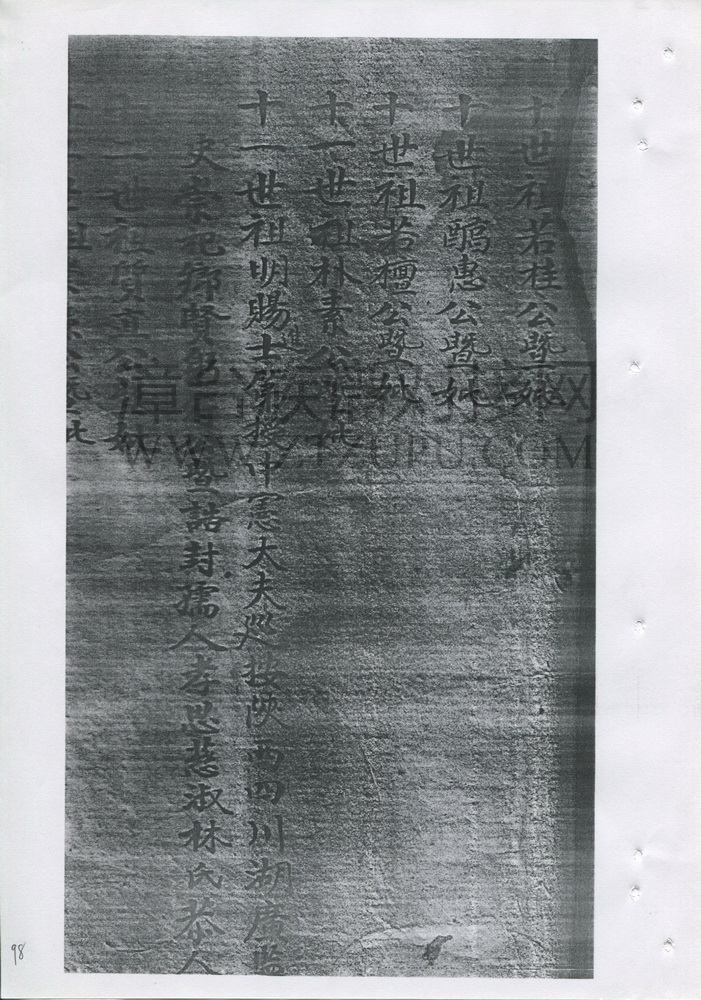 十世祖若桂公暨妣
十世祖醇惠公暨妣
十世祖若檀公暨妣
十一世祖朴素公暨妣
十一世祖明賜進士第授中憲大夫巡按陝西四川湖廣監
史崇祀鄉賢 公暨誥封孺人孝思慈淑林氏恭人
十一世祖質直公妣
十一世祖 公暨妣
WWW.ZTZUPU.COM
98